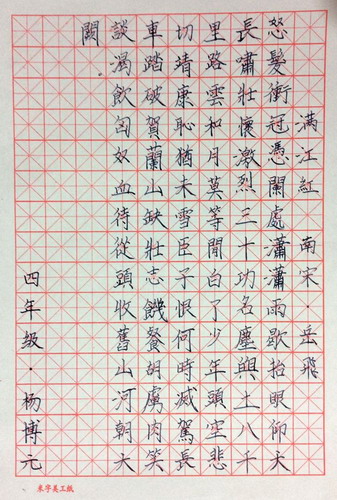 满江紅 南宋·岳飛
怒髮衝冠憑闌處瀟瀟雨歇抬眼仰天
長嘯壯懷激烈三十功名塵與土八千
里路雲和月莫等閒白了少年頭空悲
切靖康恥猶未雪臣子恨何時滅駕長
車踏破賀蘭山缺壯志饑餐胡虜肉笑
談渴飲匈奴血待從頭收舊山河朝天
闕
四年级·杨博元
米字美工纸